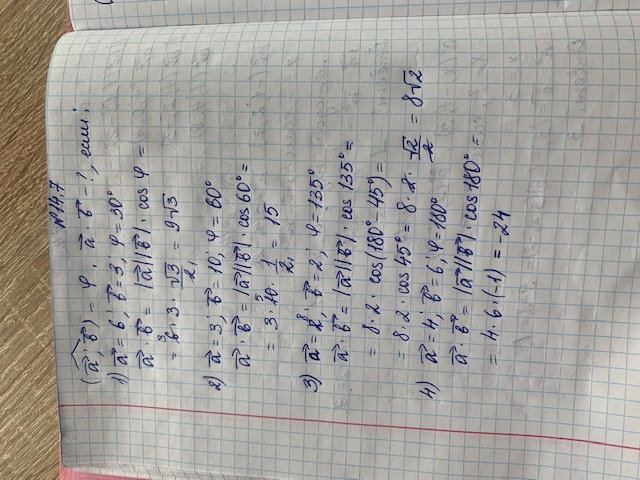 №14.7
(a⃗, b⃗) = φ. a⃗ · b⃗ - ?, если:
1) a⃗ = 6; b⃗ = 3; φ = 30°
a⃗ · b⃗ = |a⃗||b⃗| · cos φ =
= 6 · 3 · √3/2 = 9√3
2) a⃗ = 3; b⃗ = 10; φ = 60°
a⃗ · b⃗ = |a⃗||b⃗| · cos 60° =
= 3 · 10 · 1/2 = 15
3) a⃗ = 8; b⃗ = 2; φ = 135°
a⃗ · b⃗ = |a⃗||b⃗| · cos 135° =
= 8 · 2 · cos(180° - 45°) =
= 8 · 2 · cos 45° = 8 · 2 · √2/2 = 8√2
4) a⃗ = 4; b⃗ = 6; φ = 180°
a⃗ · b⃗ = |a⃗||b⃗| · cos 180° =
= 4 · 6 · (-1) = -24